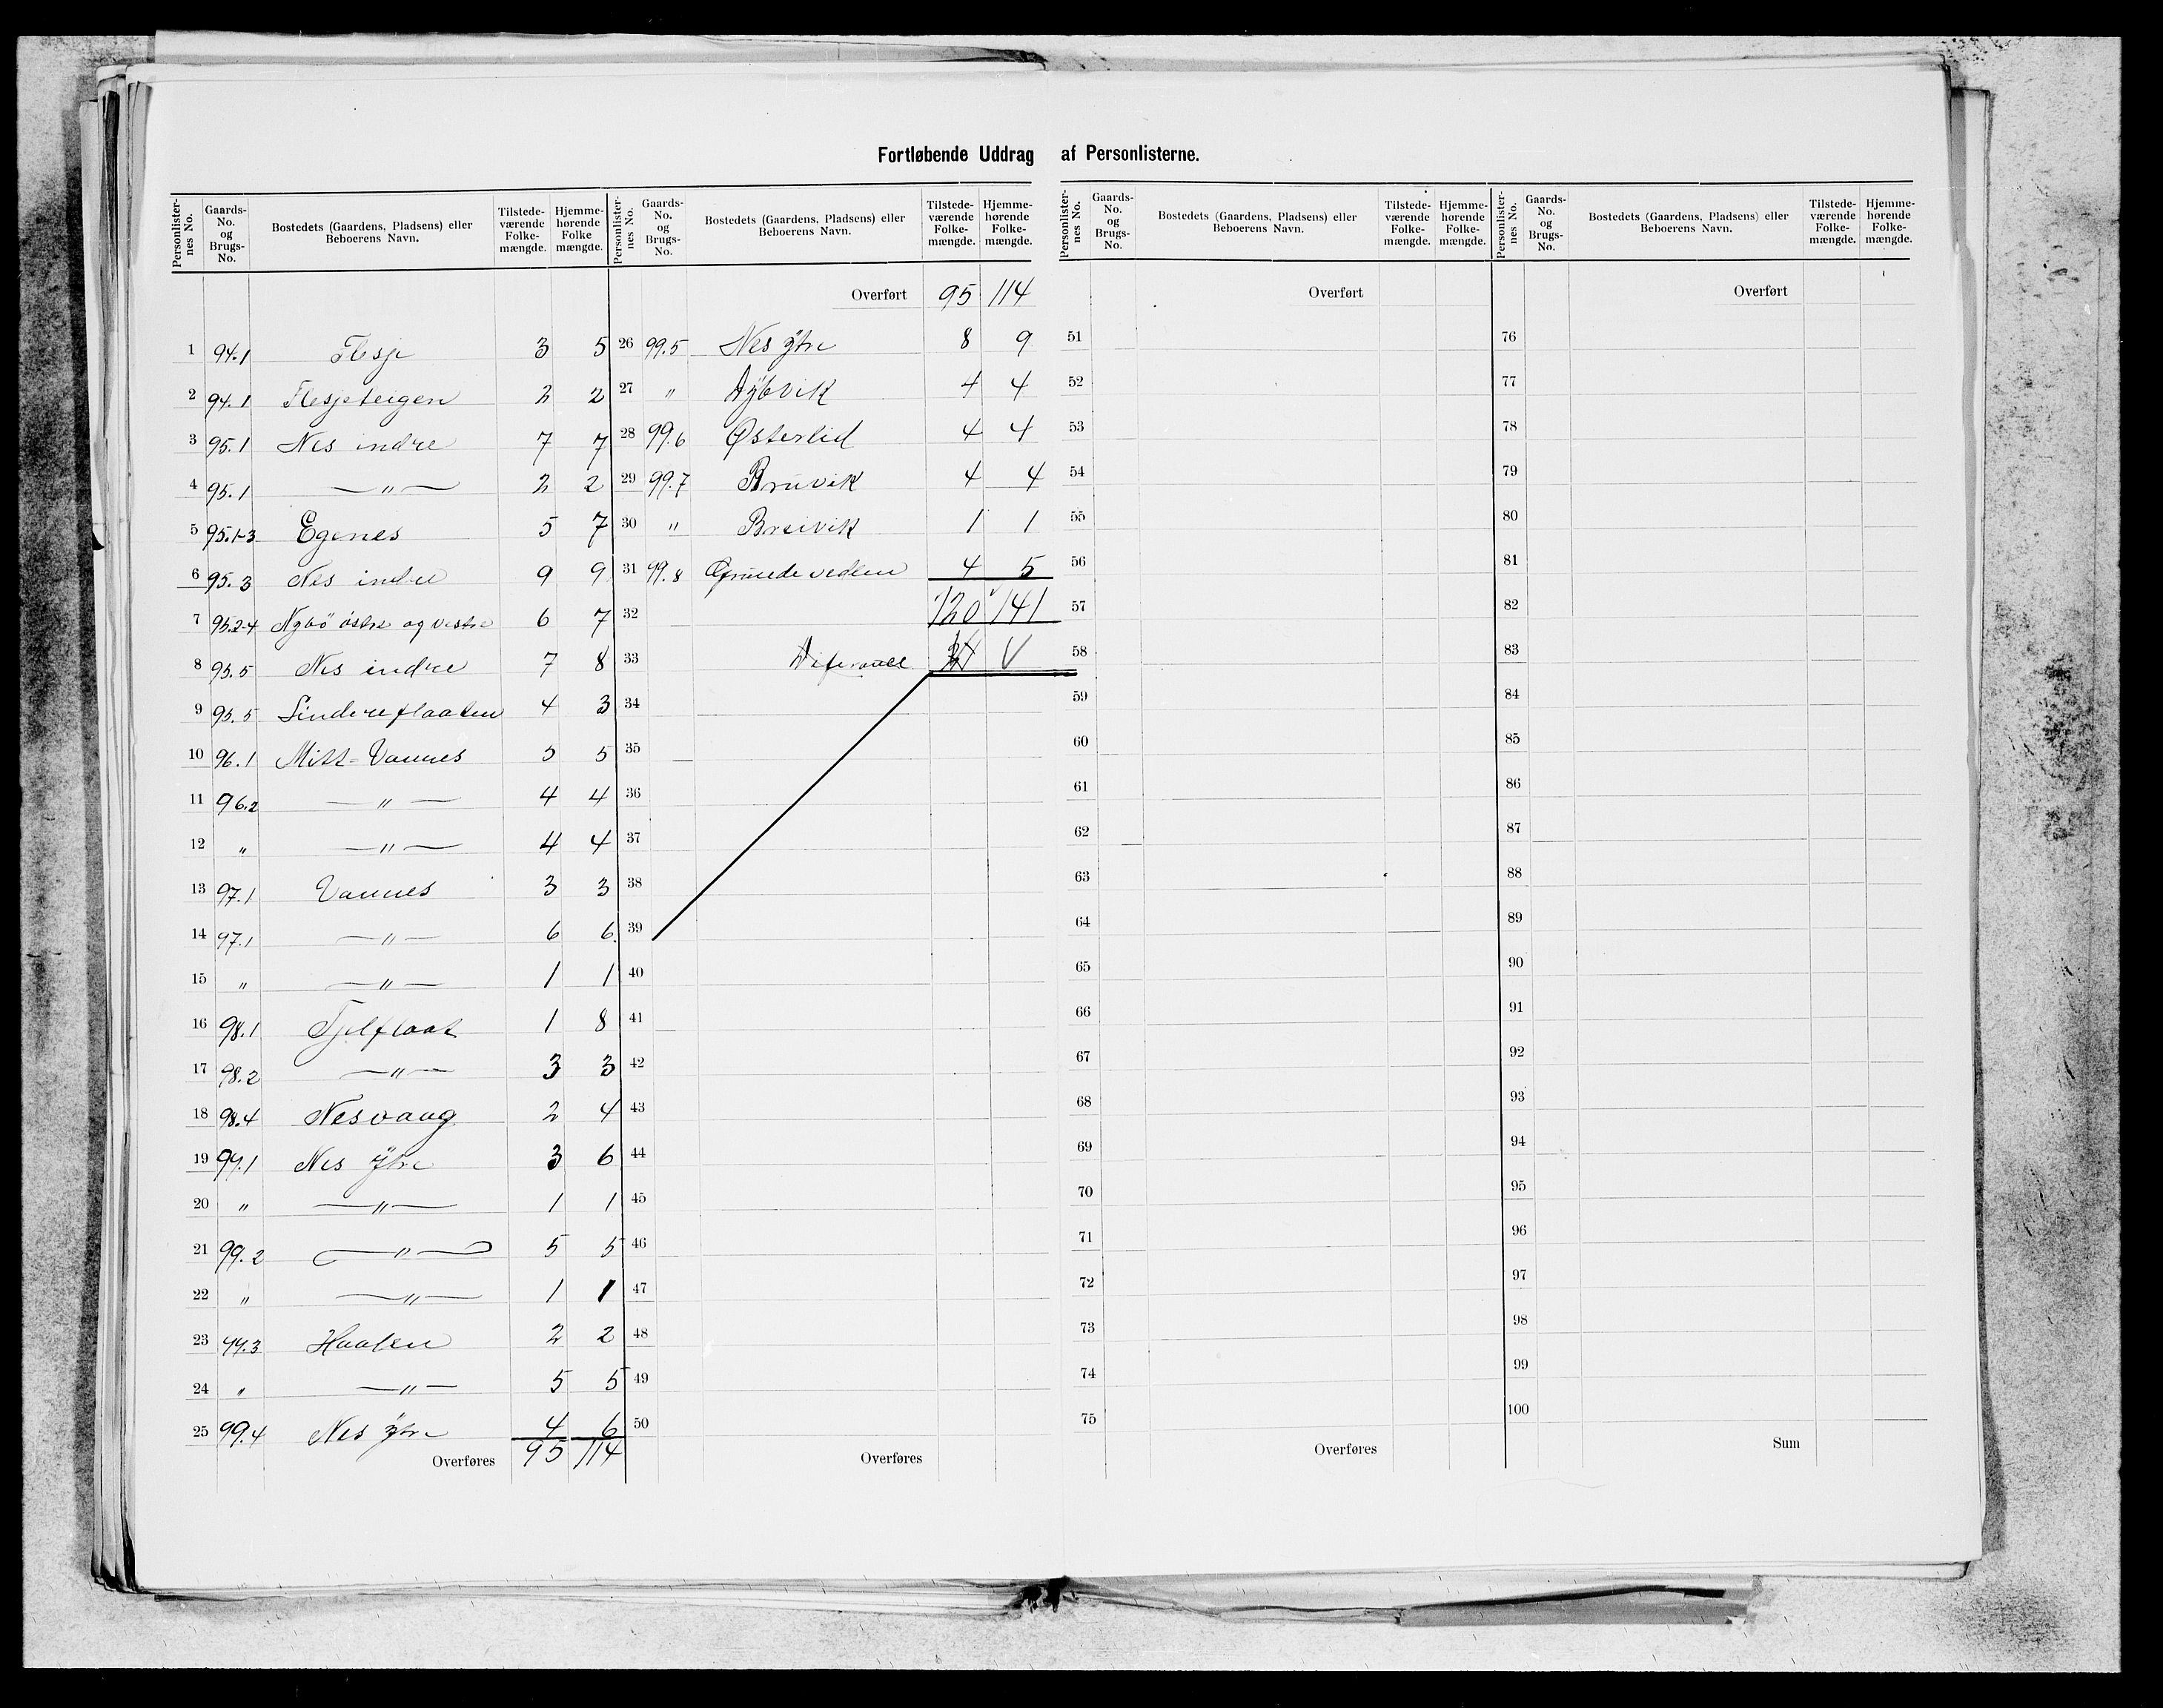 Fortløbende Uddrag af Personlisterne.
Personlisternes No. | Gaards-No. og Brugs-No. | Bostedets (Gaardens, Pladsens) eller Beboerens Navn. | Tilstedeværende Folkemængde. | Hjemmehørende Folkemængde.
1 94.1 Flesje 3 5
2 94.1 Flesjeteigen 2 2
3 95.1 Nes indre 7 7
4 95.1 —"— 2 2
5 95.1-3 Egenes 5 7
6 95.3 Nes indre 9 9
7 95.2-4 Nybö östre og vestre 6 7
8 95.5 Nes indre 7 8
9 95.5 Lindereflaaten 4 3
10 96.1 Mitt-Vannes 5 5
11 96.2 —"— 4 4
12 " —"— 4 4
13 97.1 Vannes 3 3
14 97.1 —"— 6 6
15 " —"— 1 1
16 98.1 Tjelflaat 1 8
17 98.2 —"— 3 3
18 98.4 Nesvang 2 4
19 99.1 Nes ÿtre 3 6
20 " —"— 1 1
21 99.2 —"— 5 5
22 " —"— 1 1
23 99.3 Haalen 2 2
24 " —"— 5 5
25 99.4 Nes ÿtre 4 6
Overføres 95 114
Personlisternes No. | Gaards-No. og Brugs-No. | Bostedets (Gaardens, Pladsens) eller Beboerens Navn. | Tilstedeværende Folkemængde. | Hjemmehørende Folkemængde.
Overført 95 114
26 99.5 Nes ÿtre 8 9
27 " Dÿbvik 4 4
28 99.6 Østerlid 4 4
29 99.7 Bruvik 4 4
30 " Breivik 1 1
31 99.8 4 5
32 120 141
33
34
35
36
37
38
39
40
41
42
43
44
45
46
47
48
49
50
Overføres
Personlisternes No. | Gaards-No. og Brugs-No. | Bostedets (Gaardens, Pladsens) eller Beboerens Navn. | Tilstedeværende Folkemængde. | Hjemmehørende Folkemængde.
Overført
51
52
53
54
55
56
57
58
59
60
61
62
63
64
65
66
67
68
69
70
71
72
73
74
75
Overføres
Personlisternes No. | Gaards-No. og Brugs-No. | Bostedets (Gaardens, Pladsens) eller Beboerens Navn. | Tilstedeværende Folkemængde. | Hjemmehørende Folkemængde.
Overført
76
77
78
79
80
81
82
83
84
85
86
87
88
89
90
91
92
93
94
95
96
97
98
99
100
Sum